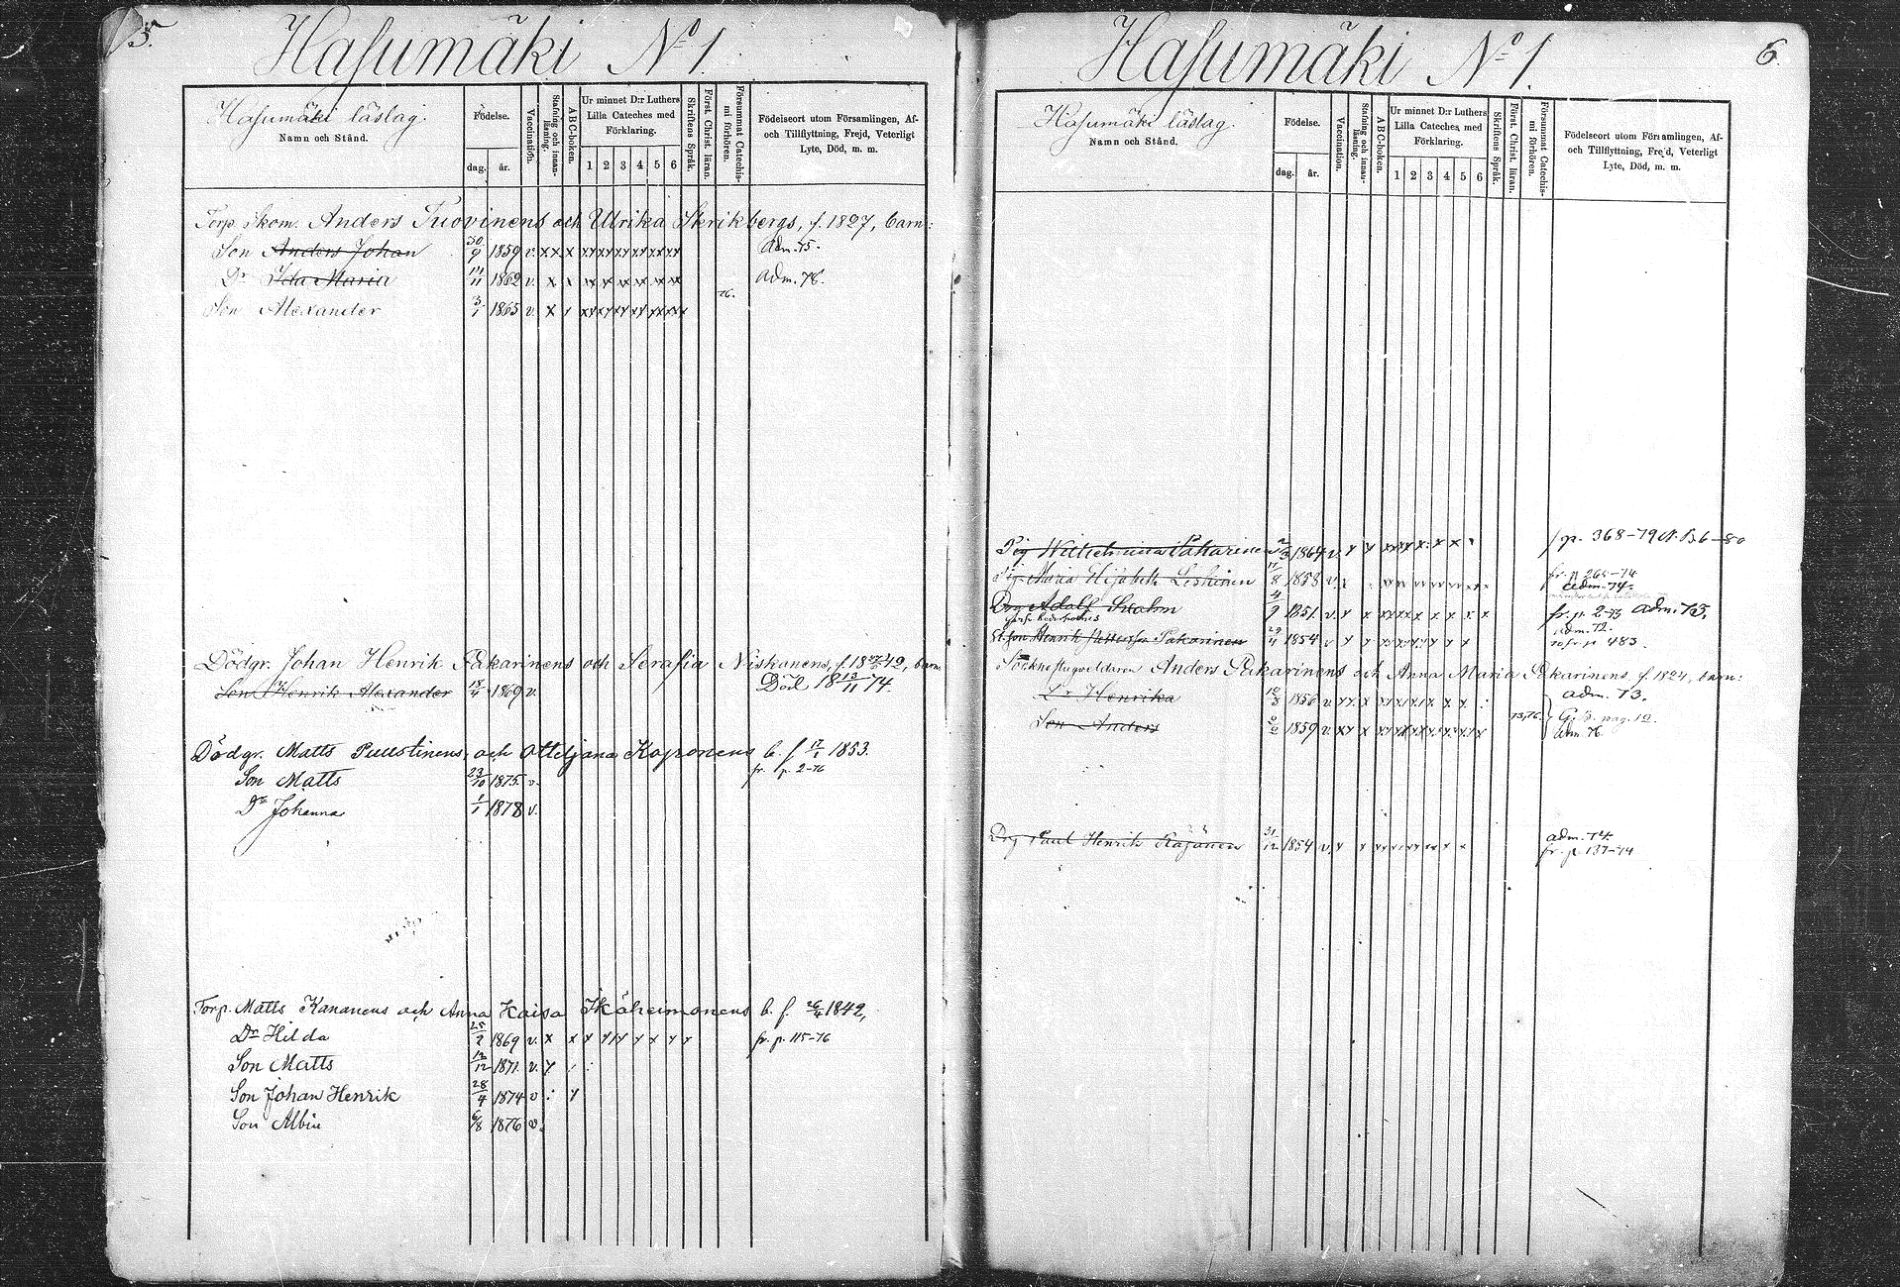 5.
Hasumäki No 1.
Hasumäki läslag.
Namn och Stånd.
Födelse.
dag. år.
Vaccination.
Stafning och innanläsning.
ABC-boken.
Ur minnet D:r Luthers Lilla Cateches med Förklaring.
1 2 3 4 5 6
Skriftens Språk.
Först. Christ. läran.
Försummat Catechismi förhören.
Födelseort utom Församlingen, Af- och Tillflyttning, Frejd, Veterligt Lyte, Död, m. m.
Torp. Skom. Anders Tuovinens och Ulrika Skrikbergs, f. 1827, barn:
Son Anders Johan 30/9 1859 v. x x x xx xx xx xx xx xx Adm. 75.
Dr Ida Maria 11 1862 v. x x xx xx xx xx xx Adm. 78.
76.
Son Alexander 3/1 1865 v. x x xx xx xx xx xx xx
Dödgr. Johan Henrik Pakarinens och Serafia Niskanens, f. 42, barn
Son Henrik Alexander 18/4 1869 v. Död 18 12/11 74.
Dödgr. Matts Puustinens och Ottiljana Koponens b. f. 17/1 1853.
Son Matts 23/10 1875 v. fr. p. 2-76
Dr Johanna 1/1 1878 v.
Torp. Matts Kananens och Anna Kaisa Ikäheimonens b. f. 26/4 1842,
Dr Hilda 25/2 1869 v. x x x x x x x x fr. p. 115-76
Son Matts 12/12 1871 v. x
Son Johan Henrik 28/4 1874 v x
Son Albin 6/8 1876 v.
6.
Hasumäki No 1.
Hasumäki läslag.
Namn och Stånd.
Födelse.
dag. år.
Vaccination.
Stafning och innanläsning.
ABC-boken.
Ur minnet D:r Luthers Lilla Cateches, med Förklaring.
1 2 3 4 5 6
Skriftens Språk.
Först. Christ. läran.
Försummat Catechismi förhören.
Födelseort utom Församlingen, Af- och Tillflyttning, Frejd, Veterligt Lyte, Död, m. m.
Pig Wilhelmina Pakarinen 2/3 1864 v. x x xx xx x x x p. 368-79
Pig Maria Elisabeth Leskinen 8 1858 v. fr. p 265-74
adm. 74.
Drg Adolf 4/9 1851 v. x x xx xx x x x x x fr. p. 2-73 Adm. 73,
Henrik Pakarinen 29/4 1854 v x x xx xx x x x adm. 72.
p. 483
Anders Pakarinens och Anna Maria Pakarinens f. 1824, barn:
Dr Henrika 10/3 1856 v xx. x adm. 73.
Son Anders 1859 v. xx x 73,76. pag. 12.
adm 76
Drg Paul Henrik Räjänen 31/12 1854 v. x x xx adm. 74.
fr. p. 137-74